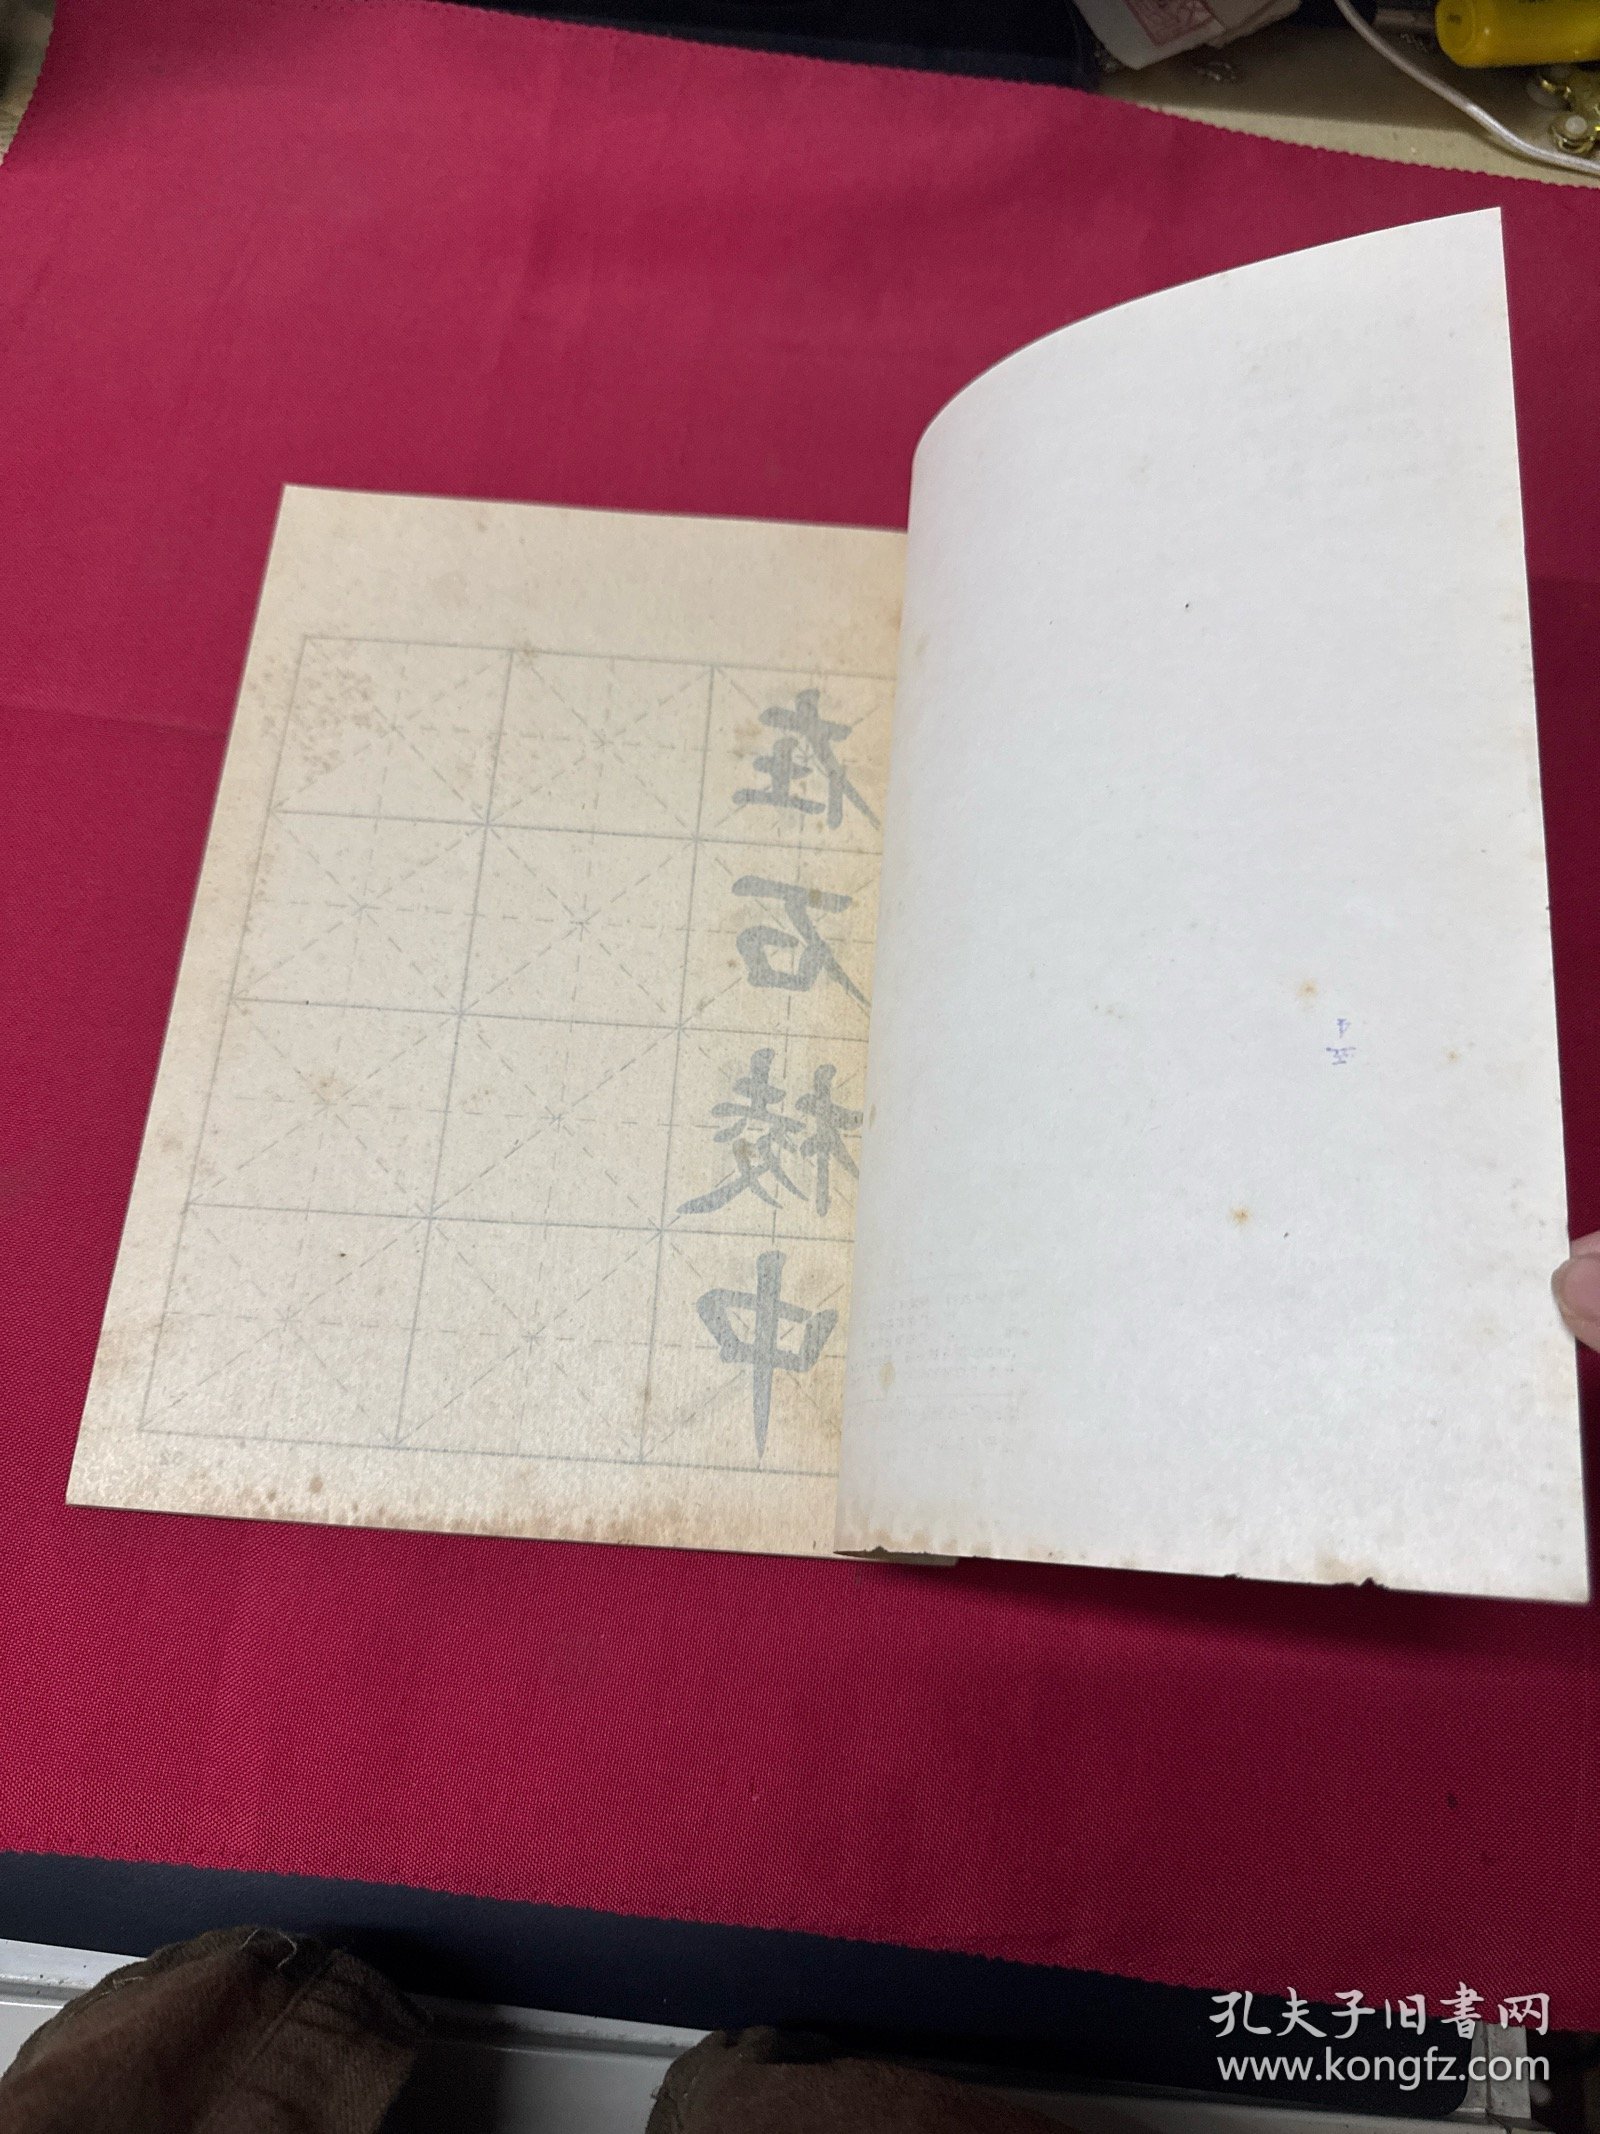 在
石
棱
中
52
孔夫子旧書网
www.kongfz.com